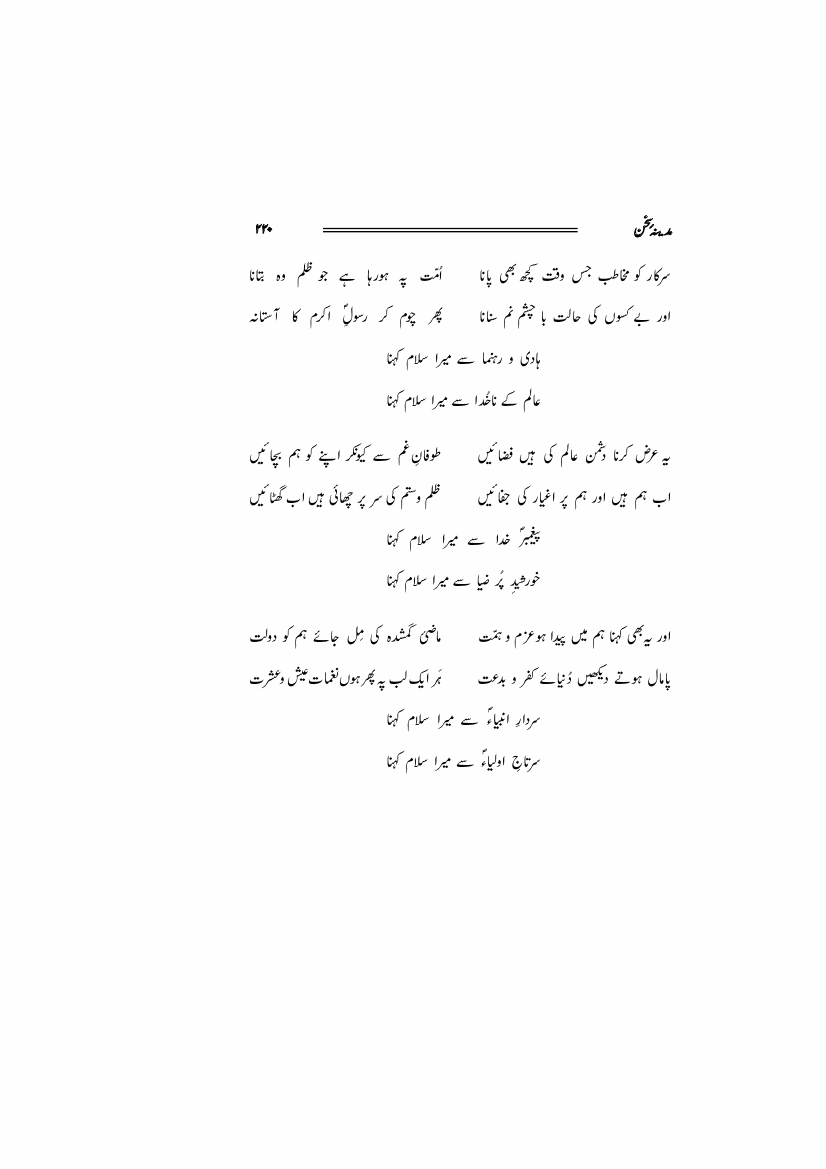 مدینۂ سخن ۲۲۰
سرکار کو مخاطب جس وقت کچھ بھی پانا اُمّت پہ ہورہا ہے جو ظلم وہ بتانا
اور بے کسوں کی حالت با چشم نم سنانا پھر چوم کر رسولِؐ اکرم کا آستانہ
ہادی و رہنما سے میرا سلام کہنا
عالم کے ناخُدا سے میرا سلام کہنا
یہ عرض کرنا دشمن عالم کی ہیں فضائیں طوفانِ غم سے کیونکر اپنے کو ہم بچائیں
اب ہم ہیں اور ہم پر اغیار کی جفائیں ظلم وستم کی سر پر چھائی ہیں اب گھٹائیں
پیغمبرؐ خدا سے میرا سلام کہنا
خورشیدِ پُر ضیا سے میرا سلام کہنا
اور یہ بھی کہنا ہم میں پیدا ہو عزم و ہمّت ماضیٔ گمشدہ کی مِل جائے ہم کو دولت
پامال ہوتے دیکھیں دُنیائے کفر و بدعت ہَر ایک لب پہ پھر ہوں نغمات عیش وعشرت
سردارِ انبیاءؐ سے میرا سلام کہنا
سرتاجِ اولیاءؐ سے میرا سلام کہنا